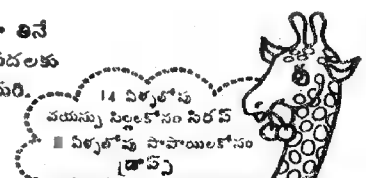 తినే
14 ఏళ్ళలోపు
వయస్సు పిల్లలకోసం సిరప్
ఏళ్ళలోపు పాపాయిలకోసం
డ్రాప్స్